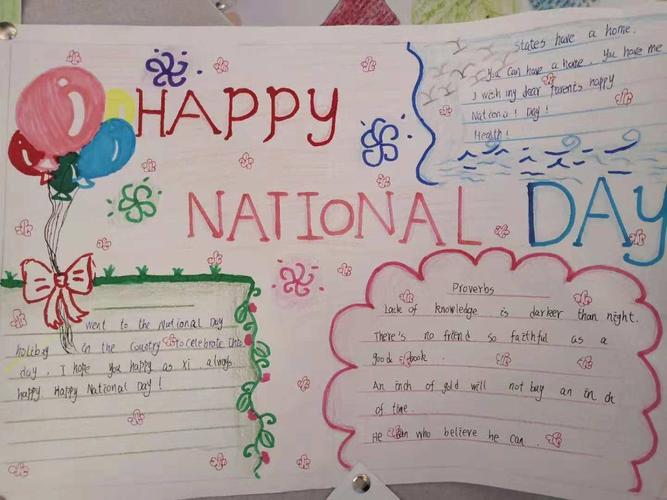 HAPPY
NATIONAL DAY
States have a home.
You can have a home. You have me
I wish my dear parents happy
National Day!
Health!
went to the National Day
holiday in the country to celebrate this
day. I hope you happy as xi always
happy Happy National Day!
Proverbs
Lack of knowledge is darker than night.
There's no friend so faithful as a
good book.
An inch of gold will not buy an inch
of time.
He can who believe he can.